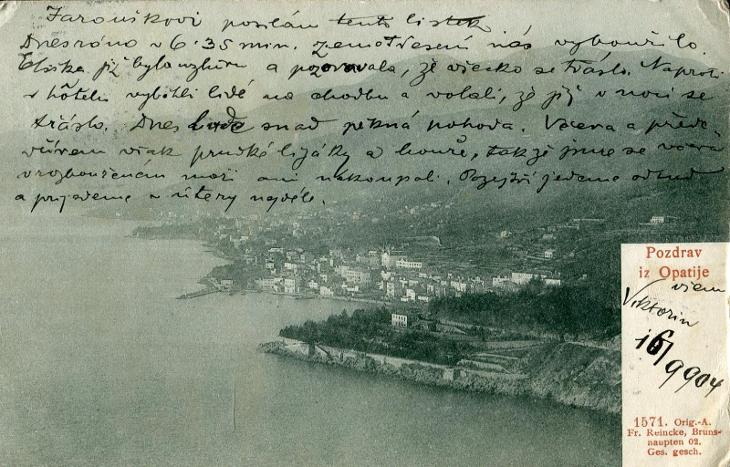 Jarouškovi posílám tento lístek
Dnes ráno v 6·35 min. zemětřesení nás vybouřilo.
Elsika již byla vzhůru a pozorovala, že všecko se třáslo. Naproti
v hôtelu vyběhli lidé na chodbu a volali, že již v noci se
třáslo. Dnes bude snad pěkná pohoda. Včera a přede-
včírem však prudké lijáky a bouře, takže jsme se včera
v rozbouřeném moři ani nekoupali. Pozejtří jedeme odtud
a přijedeme v úterý nejdéle.
Pozdrav
iz Opatije
všem
Viktorin
16/9 904
1571. Orig.-A.
Fr. Reincke, Bruns-
haupten 02.
Ges. gesch.